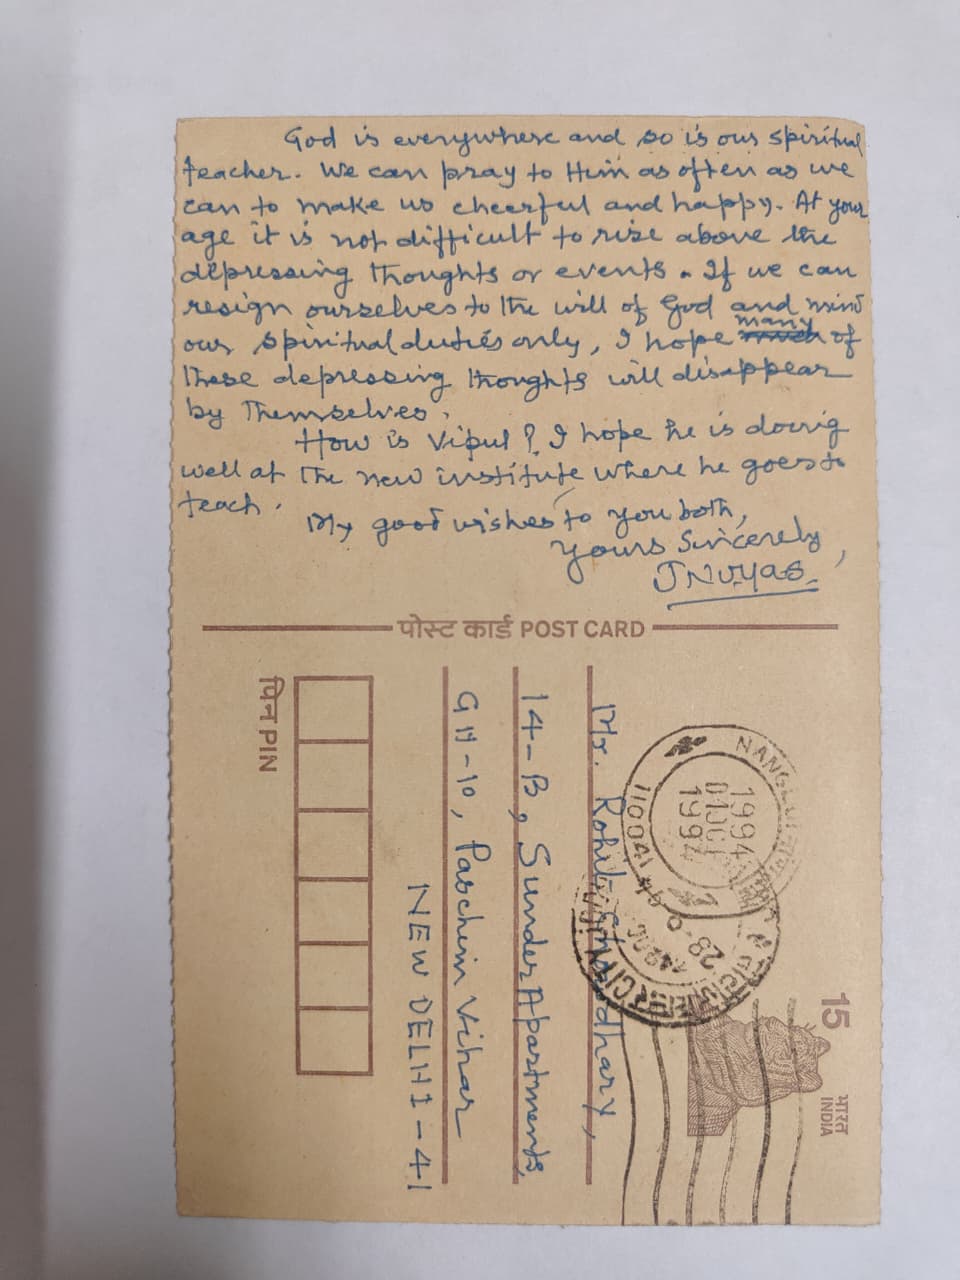 God is everywhere and so is our spiritual
teacher. We can pray to Him as often as we
can to make us cheerful and happy. At your
age it is not difficult to rise above the
depressing thoughts or events. If we can
resign ourselves to the will of God and mind
our spiritual duties only, I hope many of
these depressing thoughts will disappear
by themselves.
How is Vipul? I hope he is doing
well at the new institute where he goes to
teach.
My good wishes to you both,
Yours Sincerely,
JNVyas
पोस्ट कार्ड POST CARD
Mr. Rohit
14-B, Sunder Apartments,
GH-10, Paschim Vihar
NEW DELHI-41
पिन PIN
110041
1994
01 OCT
1994
28
CITY
15
भारत
INDIA